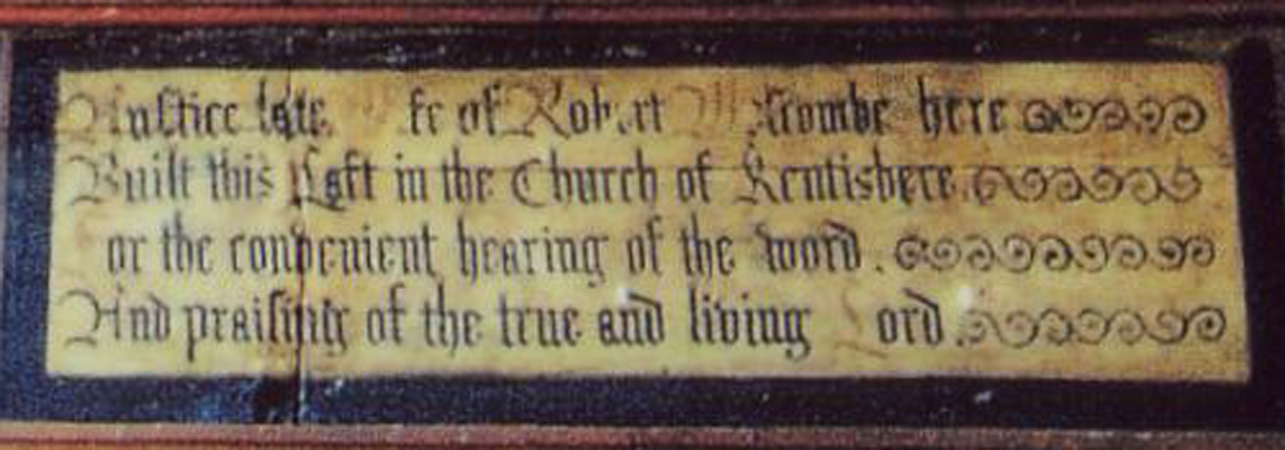 Anstice late Wife of Robert Wescombe here
Built this Loft in the Church of Kentisbere.
For the convenient hearing of the word.
And praising of the true and living Lord.